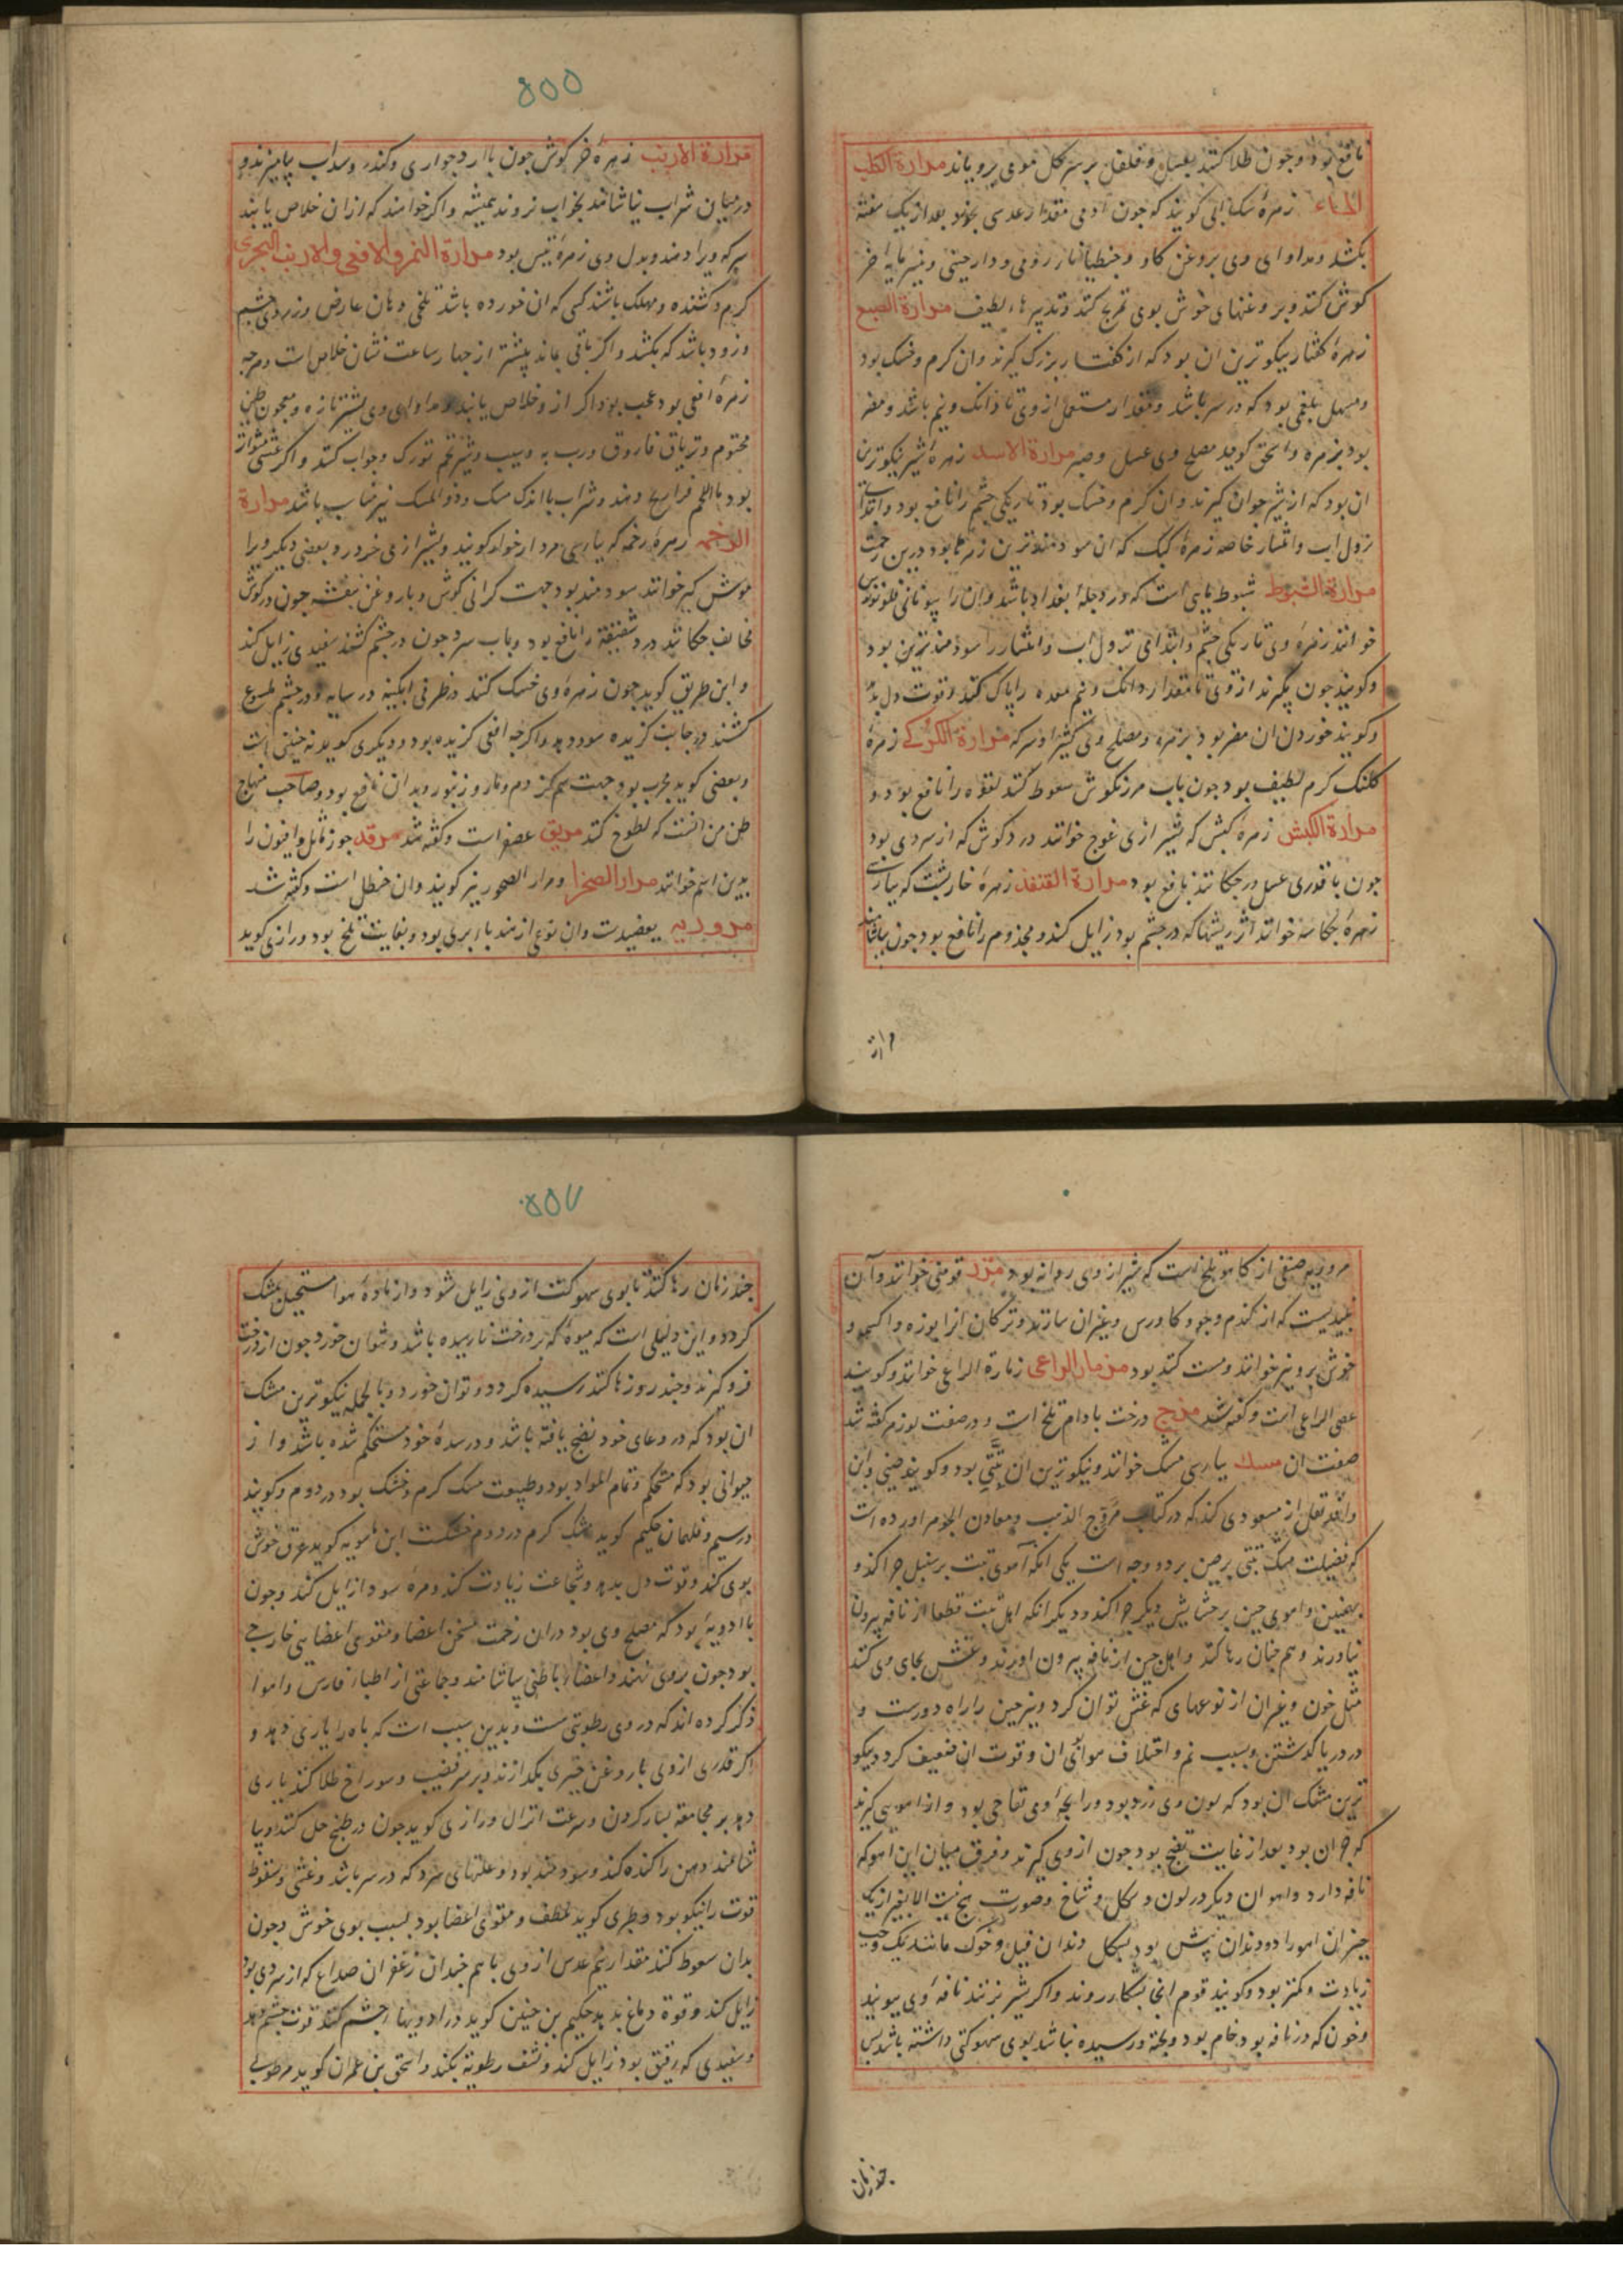 نافع بود و چون طلا کنند بعسل و فلفل بر سر کل موی برویاند مرارة الکلب
الماء زهرهٔ سک ابی کویند که چون ادمی مقدار عدسی بخورد بعد از یک هفته
بکشد و مداوای وی بروغن کاو و جنطیانا رومی و دارچینی و پنیر مایه خر
کوش کنند و بروغنهای خوش بوی تمریخ کنند و تدبیرهاء لطیف مرارة الضبع
زهرهٔ کفتار نیکوترین ان بود که از کفتار بزرک کیرند وان کرم و خشک بود
و مسهل بلغمی بود که در سر باشد و مقدار مستعمل از وی تا دانک و نیم باشد و مضر
بود بزهره و اسحق کوید مصلح وی عسل و صبر مرارة الاسد زهرهٔ شیر نیکوترین
ان بود که از شیر جوان کیرند وان کرم و خشک بود تاریکی چشم را نافع بود و ابتدا
نزول اب و انتشار خاصه زهرهٔ کبک که ان سودمندترین زهرها بود درین زحمت
مرارة الشبوط شبوط ماهی است که در دجلهٔ بغداد باشد وان را بیونانی
خوانند زهرهٔ وی تاریکی چشم و ابتدای نزول اب و انتشار را سودمندترین بود
و کویند چون بکیرند از وی تا مقدار دانک و نیم معده را پاک کند و قوت دل بدهد
و کویند خوردن ان مضر بود بزهره و مصلح وی کثیرا و سرکه مرارة الکرکی زهرهٔ
کلنک کرم لطیف بود چون باب مرزنکوش سعوط کنند لقوه را نافع بود
مرارة الکبش زهرهٔ کبش که بشیرازی غوج خوانند درد کوش که از سردی بود
چون با قدری عسل در چکانند نافع بود مرارة القنفذ زهرهٔ خارپشت که بپارسی
زهرهٔ خوانند اثر ریشها که در چشم بود زایل کند و مجذوم را نافع بود چون بیاشامند
مرارة
۵۵۵
مرارة الارنب زهرهٔ خرکوش چون با ارد جواری و کندر و سداب بیامیزند و
در میان شراب بیاشامند بخواب نروند همیشه و اکر خواهند که ازان خلاص یابند
سرکه ویرا دهند و بدل وی زهرهٔ تیس بود مرارة النمر والافعی والارنب البحری
کرم و کشنده و مهلک باشند کسی که ان خورده باشد تلخی دهان عارض و زردی چشم
و زود باشد که بکشد و اکر باقی ماند بیشتر از چهار ساعت نشان خلاص است و هرچه
زهرهٔ افعی بود عجب بود اکر از و خلاص یابند و مداوای وی بشیر تازه و معجون طین
مختوم و تریاق فاروق و رب به و سیب و شیر تخم تورک و جواب کنند و اکر غشی متواتر
بود ماء اللحم فراریج دهند و شراب با اندک مسک و دواء المسک نیز مناسب باشد مرارة
الرخمه زهرهٔ رخمه که بپارسی مردارخوار کویند و بشیرازی خردر و بعضی دیکر ویرا
موش کیر خوانند سودمند بود جهت کرانی کوش و با روغن بنفشه چون در کوش
مخالف چکانند درد شقیقه را نافع بود و باب سرد چون در چشم کشند سفیدی زایل کند
و ابن طریق کوید چون زهرهٔ وی خشک کنند در ظرفی ابکینه در سایه و در چشم ملسوع
کشند در جانب کزیده سود دهد و اکرچه افعی کزیده بود و دیکری کوید نه چنین است
و بعضی کوید مجرب بود جهت سم کژدم و مار و زنبور و بدان نافع بود و صاحب منهاج
ظن من انست که لطوخ کنند مریق عصفر است و کفته شد مرقد جوز ماثل و افیون را
بدین اسم خوانند مرار الصخرا و مرار الصحور نیز کویند وان حنظل است و کفته شد
مروریه یعضیدست وان نوعی از هندباء بری بود و بغایت تلخ بود و رازی کوید
مروریه صنفی از کاهو تلخ است که شیر از وی روانه بود مزر قومنی خوانند وآن
نبیدیست که از کندم و جو و کاورس و غیران سازند و ترکان انرا بوزه و اکسمه و
خوش پرو نیز خوانند و مست کننده بود مزمار الراعی زمارة الراعی خوانند و کویند
عصی الراعی است و کفته شد مزج درخت بادام تلخ است و در صفت لوزمر کفته شد
صفت ان مسک بپارسی مشک خوانند و نیکوترین ان تبتی بود و کویند چینی وابن
وافد نقل از مسعودی کند که در کتاب مروج الذهب و معادن الجوهر اورده است
که فضیلت مشک تبتی بر چین بر دو وجه است یکی انکه آهوی تبت بر سنبل چرا کند و
بهمنین واهوی چین بر حشایش دیکر چرا کند و دیکر انکه اهل تبت قطعا از نافه بیرون
نیاورند و هم چنان رها کنند و اهل چین از نافه بیرون اورند و غش بجای وی کنند
مثل خون و غیران از نوعهای که غش توان کرد و نیز چین را راه دورست و
در دریا کذشتن و بسبب نم و اختلاف هوا بوی ان و قوت ان ضعیف کردد و نیکو
ترین مشک ان بود که لون وی زرد بود و رایحهٔ اوی تفاحی بود و از اهویی کیرند
که چران بود بعد از غایت نضج بود چون از وی کیرند و فرق میان این اهو که
نافه دارد و اهوان دیکر در لون و شکل و شاخ و صورت هیچ نیست الا بغیر از یک
چیز ان اهو را دو دندان پیش بود بشکل دندان فیل و خوک مانند یک وجب
زیادت و کمتر بود و کویند قوم انجا بشکار روند و اکر شیر نزنند نافهٔ وی ببرند
و خون که در نافه بود خام بود و پخته و رسیده نباشد بوی سهوکتی داشته باشد پس
چند زمان
۵۵۷
چند زمان رها کنند تا بوی سهوکت از وی زایل شود و از مادهٔ هوا مستحیل بمشک
کردد و این دلیلی است که میوهٔ که بر درخت نارسیده باشد و نتوان خورد چون از درخت
فرو کیرند و چند روز رها کنند رسیده کردد و توان خورد و بالجمله نیکوترین مشک
ان بود که در وعای خود نضج یافته باشد و در سدهٔ خود مستحکم شده باشد و از
حیوانی بود که مستحکم و تمام المواد بود و طبیعت مسک کرم و خشک بود در دوم و کویند
در سیم و فلهمان حکیم کوید مشک کرم در دوم خشکست ابن ماسویه کوید عرق خوش
بوی کند و قوت دل بدهد و شجاعت زیادت کند و مرهٔ سودا زایل کند و چون
با ادویهٔ بود که مصلح وی بود دران زحمت مسخن اعضا و مقوی اعضایی خارجی
بود چون بروی نهند و اعضاء باطنی بیاشامند و جماعتی از اطباء فارس و اهوا
ذکر کرده اند که در وی رطوبتی است و بدین سبب است که باه را یاری دهد و
اکر قدری از وی با روغن خیری بکدازند و بر سر قضیب و سوراخ طلا کنند یاری
دهد بر مجامعة بسیار کردن و سرعت انزال و رازی کوید چون در طبیخ حل کنند و بیا
شامند دهن را کنده کند و سودمند بود و علتهای سرد که در سر باشد و غشی و سقوط
قوت را نیکو بود و طبری کوید ملطف و مقوی اعضا بود بسبب بوی خوش و چون
بدان سعوط کنند مقدار نیم عدس از وی با هم چندان زعفران صداع که از سردی بود
زایل کند و قوة دماغ بدهد حکیم بن حنین کوید در ادویها چشم کنند قوت چشم دهد
و سفیدی که رقیق بود زایل کند و نشف رطوبة بکند و اسحق بن عمران کوید مرطوبی